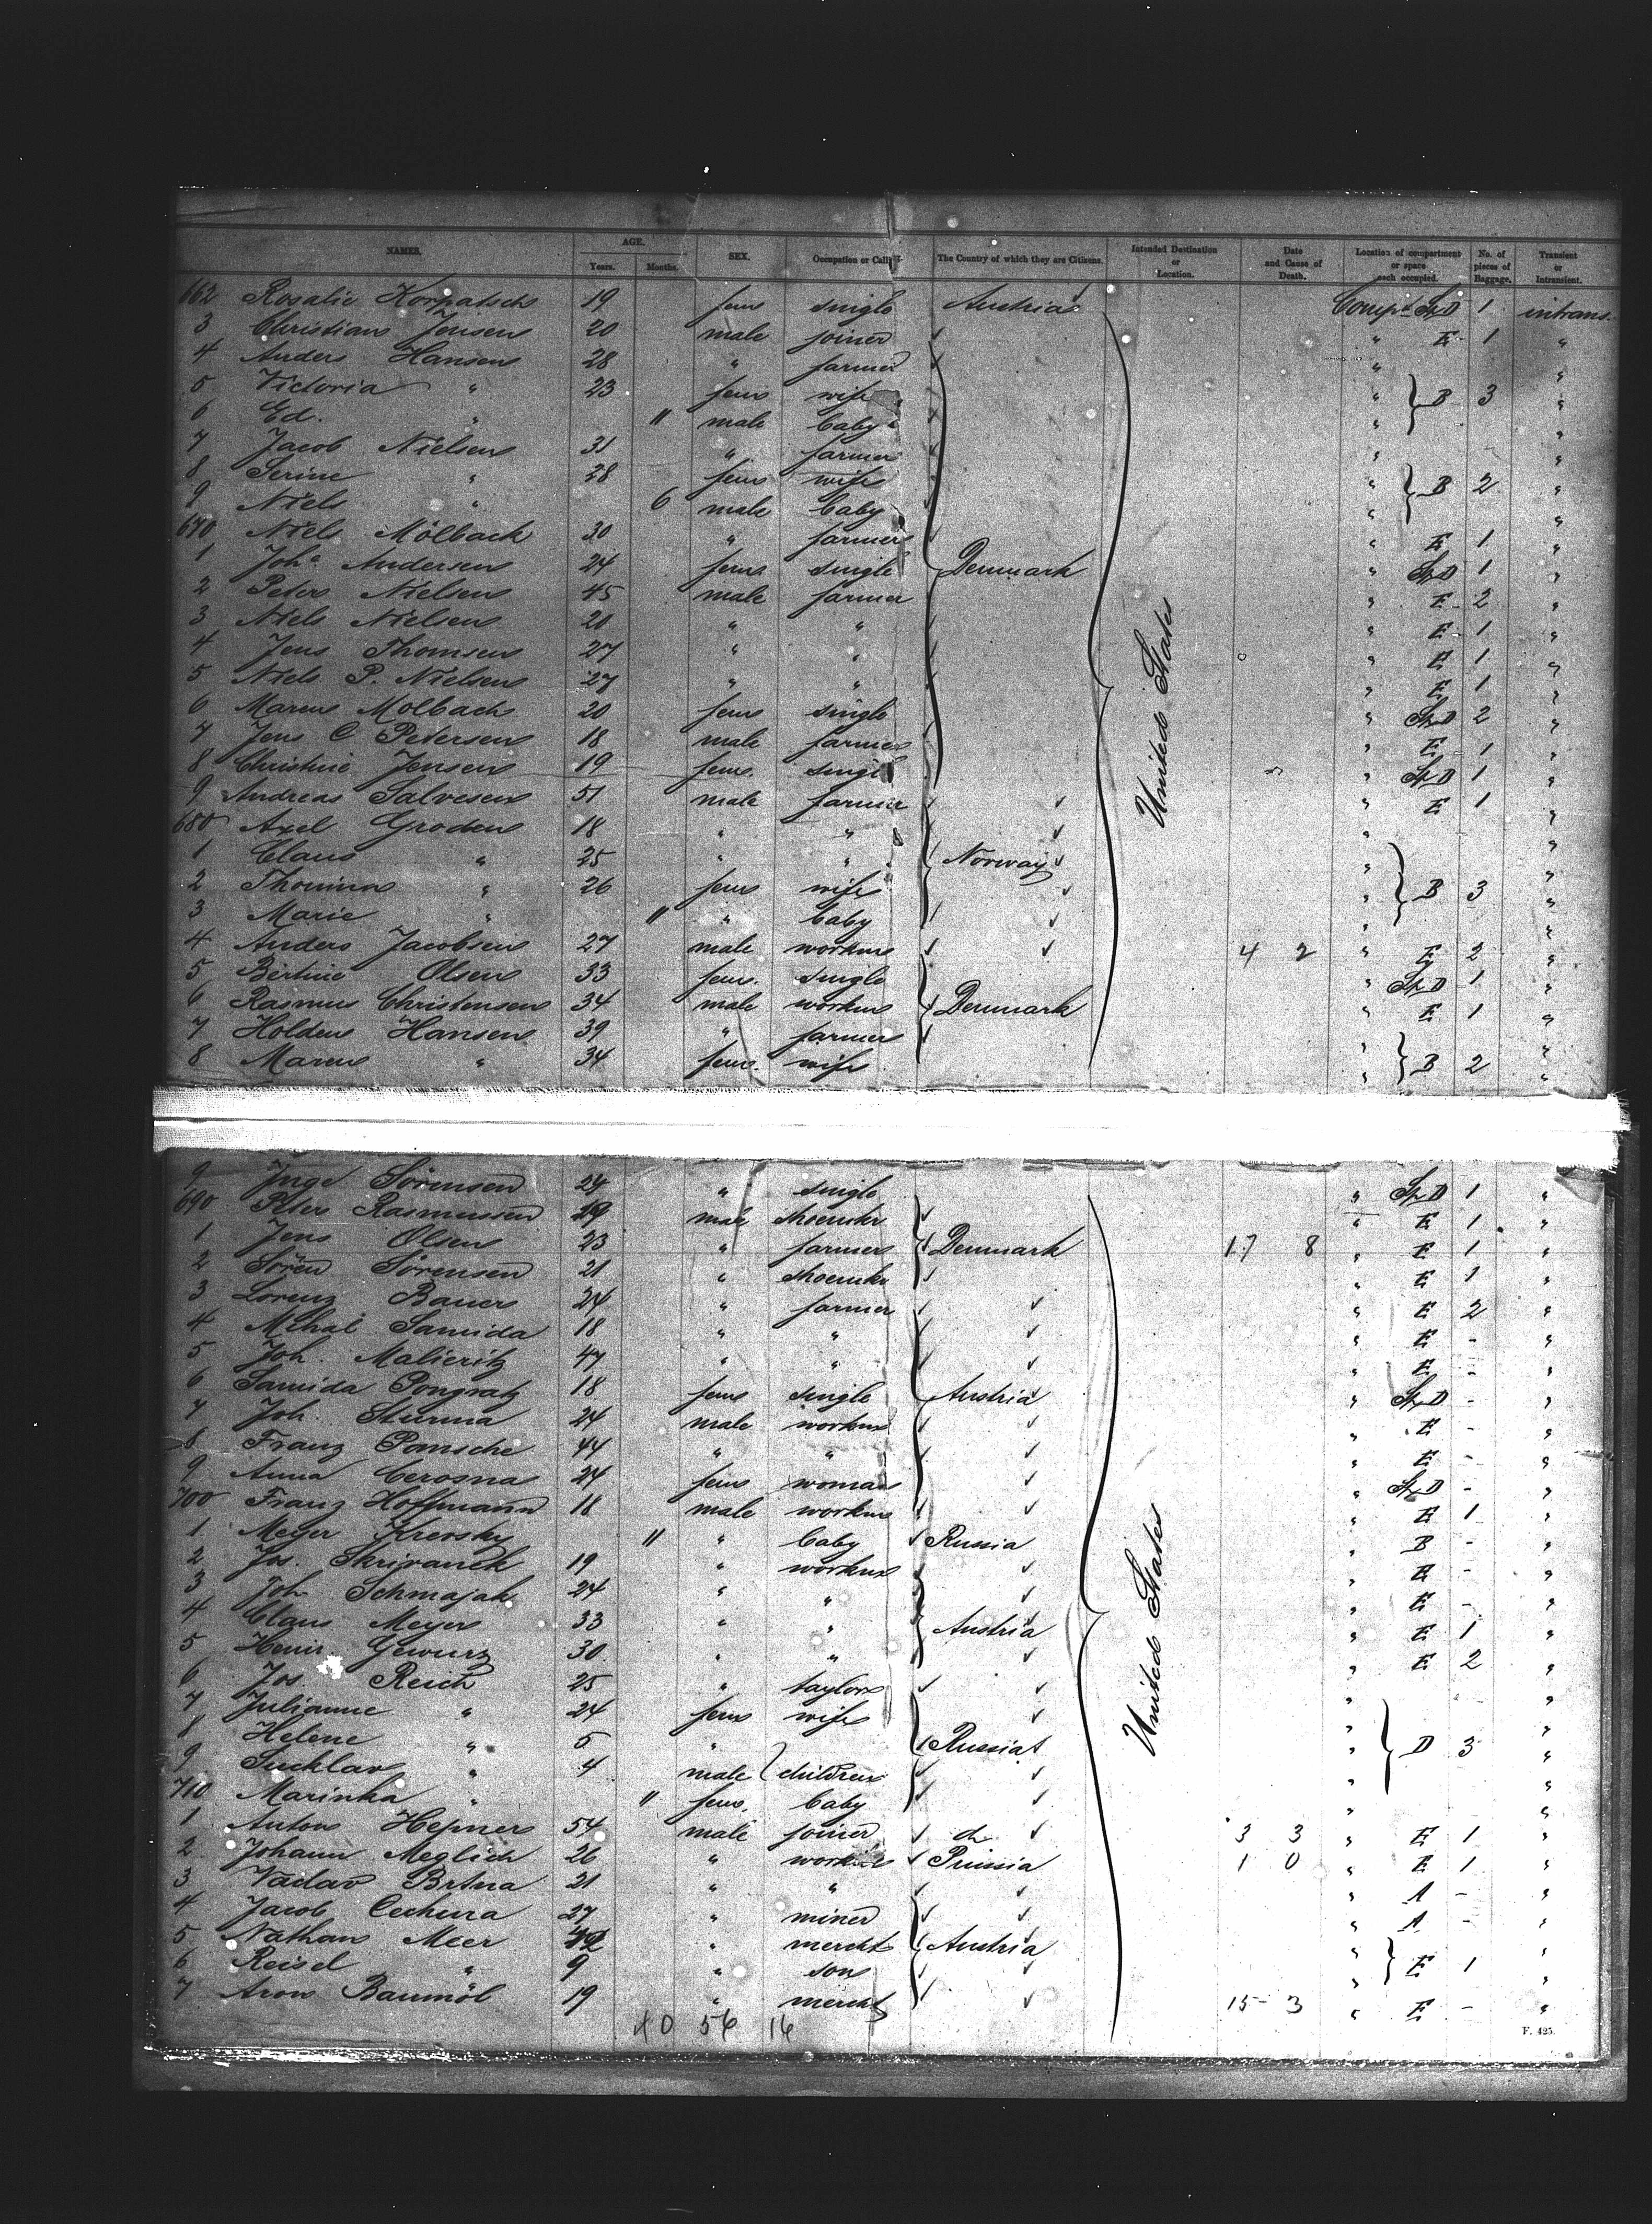 NAMES. AGE. SEX. Occupation or Calling The Country of which they are Citizens. Intended Destination or Location. Date and Cause of Death. Location of compartment or space each occupied. No. of pieces of Baggage. Transient or Intransient.
Years. Months.
662 Rosalie Korpatsch 19 fem single Austria Compt StD 1 intrans.
3 Christian Jensen 20 male joiner " E 1 "
4 Anders Hansen 28 " farmer " "
5 Victoria " 23 fem wife " B 3 "
6 Ed. " 11 male baby " "
7 Jacob Nielsen 31 " farmer " "
8 Serine " 28 fem wife " B 2 "
9 Niels " 6 male baby " "
670 Niels Mölbach 30 " farmer " E 1 "
1 Joh^a Andersen 24 fem single Denmark " StD 1 "
2 Peter Nielsen 45 male farmer " E 2 "
3 Niels Nielsen 20 " " " E 1 "
4 Jens Thomsen 27 " " " E 1 "
5 Niels P. Nielsen 27 " " " E 1 "
6 Maren Molbach 20 fem single " StD 2 "
7 Jens C Petersen 18 male farmer " E 1 "
8 Christine Jensen 19 fem. single " StD 1 "
9 Andreas Salvesen 51 male farmer " E 1 "
680 Axel Groden 18 " " " "
1 Claus " 25 " " Norway " "
2 Thomine " 26 fem wife " B 3 "
3 Marie " 11 " baby " "
4 Anders Jacobsen 27 male workm 4 2 " E 2 "
5 Bertine Olsen 33 fem. single " StD 1 "
6 Rasmus Christensen 34 male workm Denmark " E 1 "
7 Holden Hansen 39 " farmer " "
8 Maren " 34 fem. wife " B 2 "
United States
9 Inge Sörensen 24 " single " StD 1 "
690 Peter Rasmussen 29 male shoemkr " E 1 "
1 Jens Olsen 23 " farmer Denmark 17 8 " E 1 "
2 Sören Sörensen 21 " shoemkr " E 1 "
3 Lorenz Bauer 24 " farmer " E 2 "
4 Mihal Samida 18 " " " E - "
5 Joh. Malieritz 47 " " " E - "
6 Samida Pongratz 18 fem single Austria " StD - "
7 Joh. Sturma 24 male workm " E - "
8 Franz Pomsche 44 " " " E - "
9 Anna Cerosna 24 fem woman " StD - "
700 Franz Hoffmann 18 male workm " E 1 "
1 Meyer Krevsky 11 " baby Russia " B - "
2 Jos. Skrivanek 19 " workm " E - "
3 Joh Schmajak 24 " " " E - "
4 Claus Meyer 33 " " Austria " E 1 "
5 Heinr. Gewurz 30 " " " E 2 "
6 Jos. Reich 25 " taylor " "
7 Julianne " 24 fem wife " "
8 Helene " 5 " Russia " D 3 "
9 Sucklav " 4 male children " "
710 Marinka " 11 fem. baby " "
1 Anton Hepner 54 male joiner do 3 3 " E 1 "
2 Johann Meglich 26 " workm Prussia 1 0 " E 1 "
3 Vaclav Brtna 21 " " " A - "
4 Jacob Cechura 27 " miner " A - "
5 Nathan Meer 42 " mercht Austria " "
6 Reisel " 9 " son " E 1 "
7 Aron Baumöl 19 " mercht 15 - 3 " E - "
United States
40 56 16
F. 425.